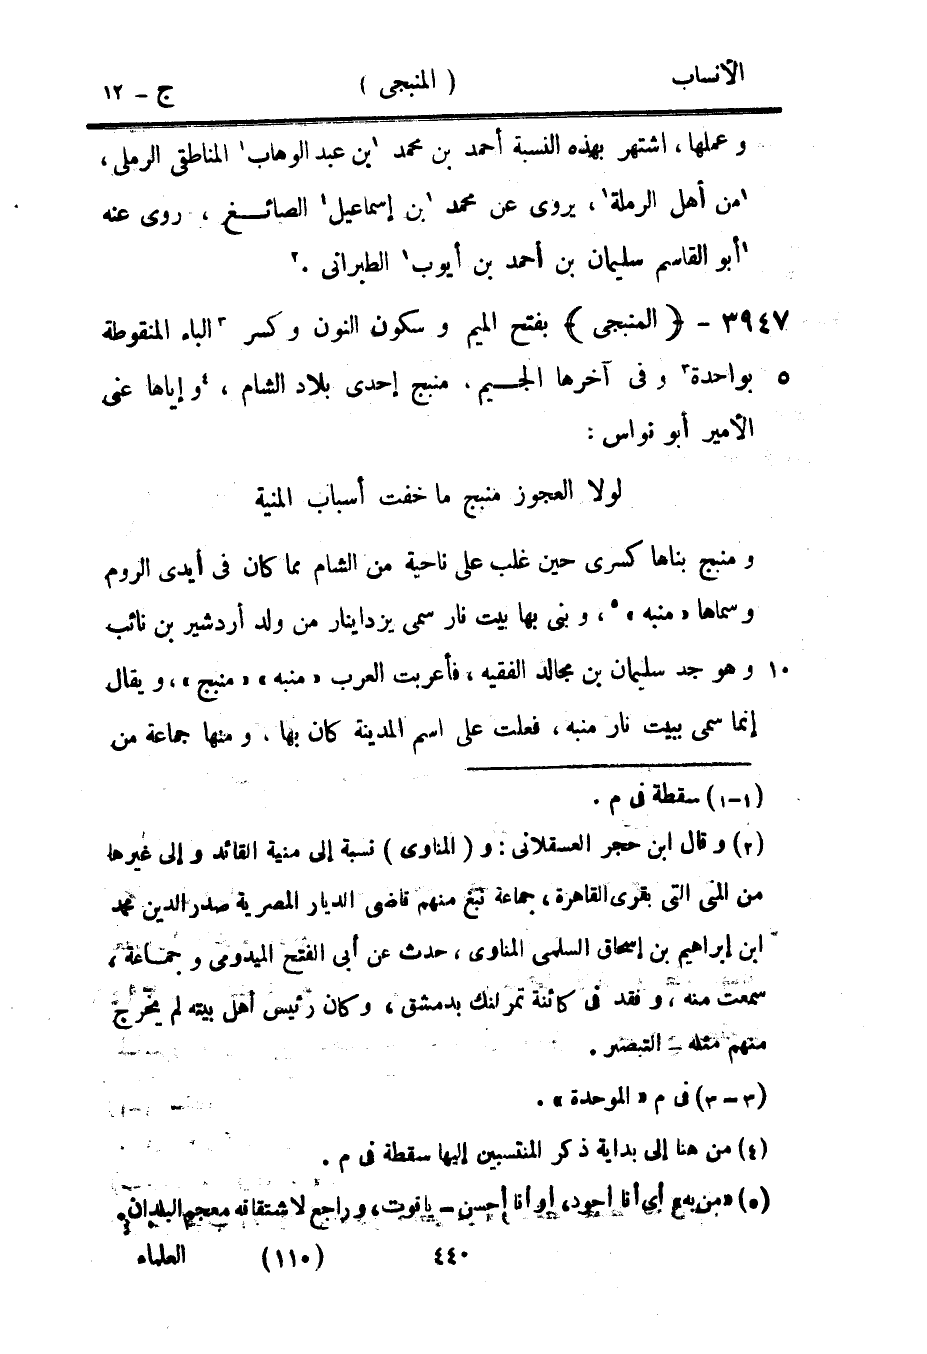 الأنساب ( المنبجى ) ج - ١٢
و عملها ، اشتهر بهذه النسبة أحمد بن محمد ١بن عبد الوهاب١ المناطقى الرملى ،
١من أهل الرملة١ ، يروى عن محمد ١بن إسماعيل١ الصائــغ ، روى عنه
١أبو القاسم سليمان بن أحمد بن أيوب١ الطبرانى .٢
٣٩٤٧ - ﴿ المنبجى ﴾ بفتح الميم و سكون النون و كسر ٣الباء المنقوطة
٥ بواحدة٣ و فى آخرها الجــيم . منبج إحدى بلاد الشام ، ٤و إياها عنى
الأمير أبو نواس :
لولا العجوز منبج ما خفت أسباب المنية
و منبج بناها كسرى حين غلب على ناحية من الشام مما كان فى أيدى الروم
و سماها « منبه »٥ ، و بنى بها بيت نار سمى يزداينار من ولد أردشير بن نائب
١٠ و هو جد سليمان بن مجالد الفقيه ، فأعربت العرب « منبه » « منبج » ، و يقال
إنما سمى ببيت نار منبه ، فعلت على اسم المدينة كان بها . و منها جماعة من
(١-١) سقطة فى م .
(٢) و قال ابن حجر العسقلانى : و ( المناوى ) نسبة إلى منية القائد و إلى غيرها
من المنى التى بقرى القاهرة ، جماعة نبغ منهم قاضى الديار المصرية صدر الدين محمد
ابن إبراهيم بن إسحاق السلمى المناوى ، حدث عن أبى الفتح الميدومى و جمـاعة ،
سمعت منه ، و فقد فى كائنة تمر لنك بدمشق ، و كان رئيس أهل بيته لم يخرج
منهم مثله - التبصير .
(٣-٣) فى م « الموحدة » .
(٤) من هنا إلى بداية ذكر المنتسبين إليها سقطة فى م .
(٥) « من به » أى أنا أجود ، أو أنا أحسن - ياقوت ، و راجع لاشتقاقه معجم البلدان .
٤٤٠ (١١٠) العلماء